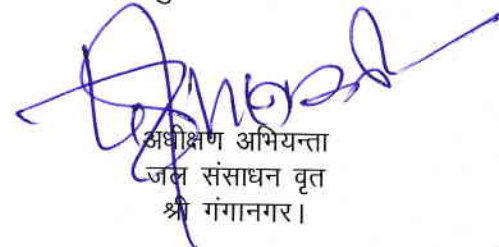 अधीक्षण अभियन्ता
जल संसाधन वृत
श्री गंगानगर।